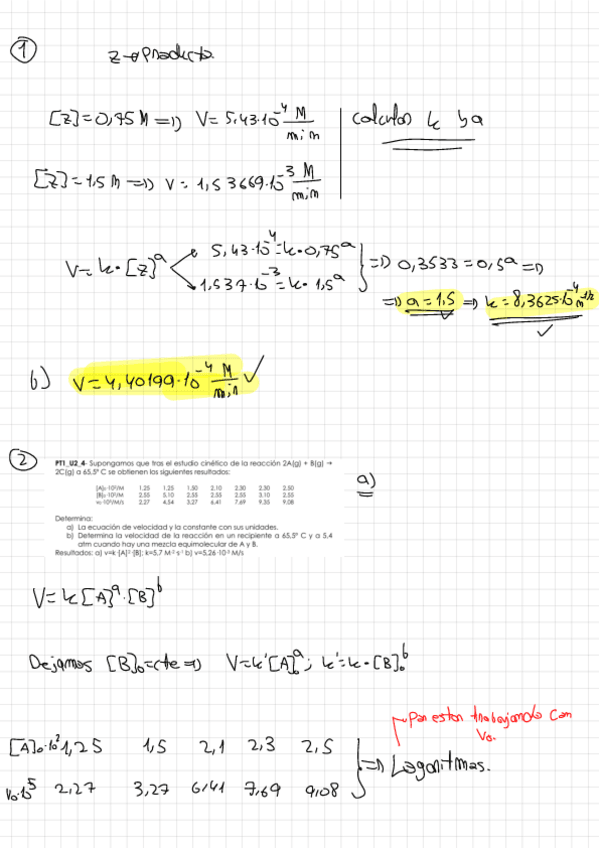 1
Z→Producto.
[Z]=0,75 M => V= 5,43·10⁻⁴ M/min
calculos k y a
[Z]=1,5 M => V= 1,53669·10⁻³ M/min
V=k·[Z]ᵃ
5,43·10⁻⁴=k·0,75ᵃ
1,537·10⁻³=k·1,5ᵃ
=> 0,3533=0,5ᵃ =>
=> a=1,5 => k=8,3625·10⁻⁴ M⁻¹/²
b) V=4,40199·10⁻⁴ M/min ✓
2
PT1_U2_4- Supongamos que tras el estudio cinético de la reacción 2A(g) + B(g) →
2C(g) a 65,5º C se obtienen los siguientes resultados:
a)
[A]₀·10²/M 1,25 1,25 1,50 2,10 2,30 2,30 2,50
[B]₀·10²/M 2,55 5,10 2,55 2,55 2,55 3,10 2,55
v₀·10⁵/M/s 2,27 4,54 3,27 6,41 7,69 9,35 9,08
Determina:
a) La ecuación de velocidad y la constante con sus unidades.
b) Determina la velocidad de la reacción en un recipiente a 65,5º C y a 5,4
atm cuando hay una mezcla equimolecular de A y B.
Resultados: a) v=k·[A]²·[B]; k=5,7 M⁻²·s⁻¹ b) v=5,26·10⁻³ M/s
V=k[A]ᵃ·[B]ᵇ
Dejamos [B]₀=cte => V=k'[A]₀ᵃ; k'=k·[B]₀ᵇ
Por estar trabajando con
V₀.
[A]₀·10² 1,25 1,5 2,1 2,3 2,5
=> Logaritmos.
V₀·10⁵ 2,27 3,27 6,41 7,69 9,08